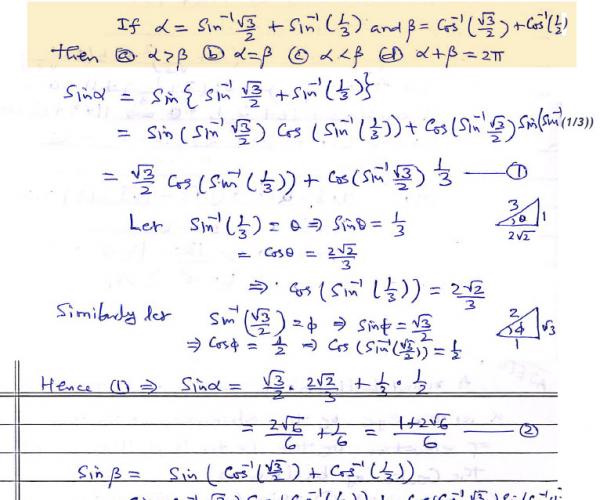 If α = Sin⁻¹ √3/2 + Sin⁻¹ (1/3) and β = Cos⁻¹ (√3/2) + Cos⁻¹ (1/3)
then ⓐ α>β ⓑ α=β ⓒ α<β ⓓ α+β = 2π
Sinα = Sin { Sin⁻¹ √3/2 + Sin⁻¹ (1/3)}
= Sin (Sin⁻¹ √3/2) Cos (Sin⁻¹ (1/3)) + Cos (Sin⁻¹ √3/2) Sin(Sin⁻¹ (1/3))
= √3/2 Cos (Sin⁻¹ (1/3)) + Cos (Sin⁻¹ √3/2) 1/3 — ①
Let Sin⁻¹ (1/3) = θ ⇒ Sinθ = 1/3
3 θ 1 2√2
= Cosθ = 2√2/3
⇒ Cos (Sin⁻¹ (1/3)) = 2√2/3
Similarly let Sin⁻¹ (√3/2) = ϕ ⇒ Sinϕ = √3/2
2 ϕ √3 1
⇒ Cosϕ = 1/2 ⇒ Cos (Sin⁻¹ (√3/2)) = 1/2
Hence ① ⇒ Sinα = √3/2 · 2√2/3 + 1/3 · 1/2
= 2√6/6 + 1/6 = 1+2√6/6 — ②
Sin β = Sin ( Cos⁻¹ (√3/2) + Cos⁻¹ (1/2))